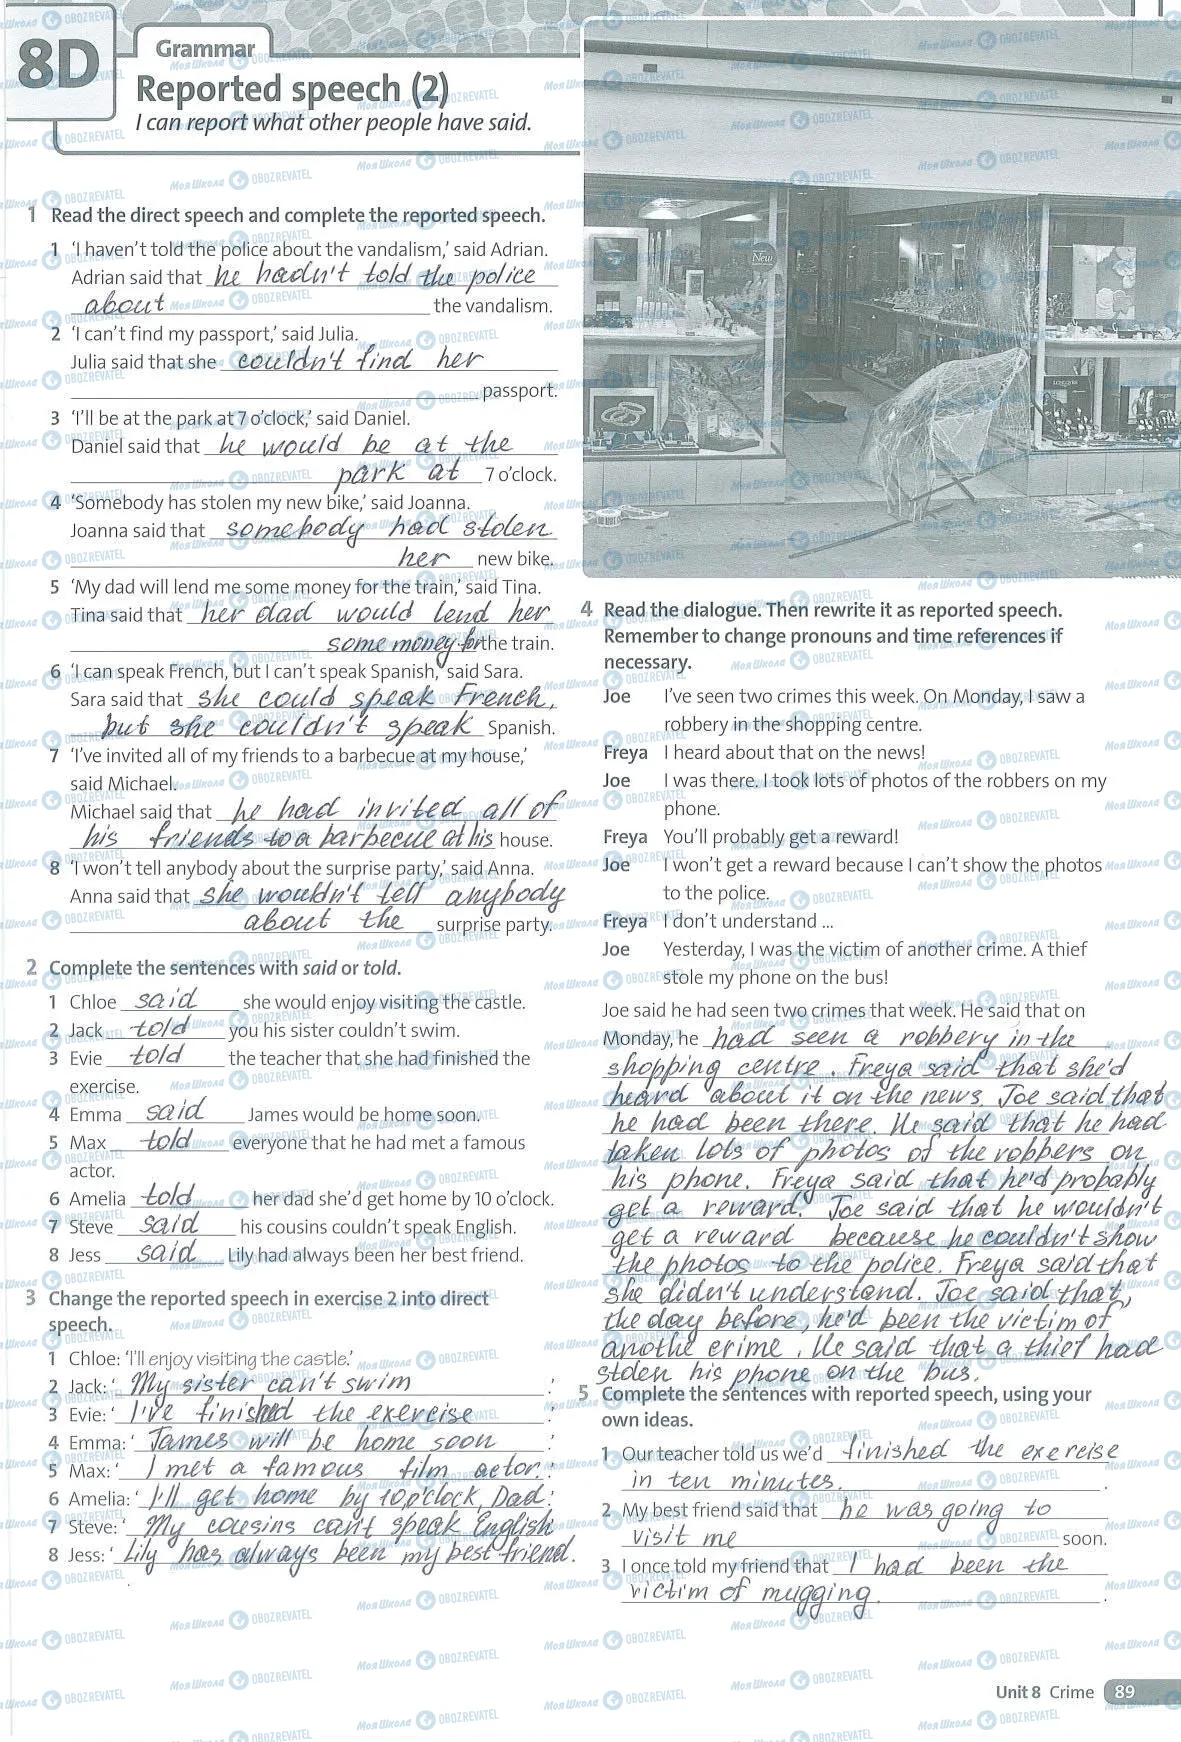 8D
Grammar
Reported speech (2)
I can report what other people have said.
1 Read the direct speech and complete the reported speech.
1 ‘I haven’t told the police about the vandalism,’ said Adrian.
Adrian said that he hadn't told the police
about the vandalism.
2 ‘I can’t find my passport,’ said Julia.
Julia said that she couldn't find her
passport.
3 ‘I’ll be at the park at 7 o’clock,’ said Daniel.
Daniel said that he would be at the
park at 7 o’clock.
4 ‘Somebody has stolen my new bike,’ said Joanna.
Joanna said that somebody had stolen
her new bike.
5 ‘My dad will lend me some money for the train,’ said Tina.
Tina said that her dad would lend her
some money for the train.
6 ‘I can speak French, but I can’t speak Spanish,’ said Sara.
Sara said that she could speak French,
but she couldn't speak Spanish.
7 ‘I’ve invited all of my friends to a barbecue at my house,’
said Michael.
Michael said that he had invited all of
his friends to a barbecue at his house.
8 ‘I won’t tell anybody about the surprise party,’ said Anna.
Anna said that she wouldn't tell anybody
about the surprise party.
2 Complete the sentences with said or told.
1 Chloe said she would enjoy visiting the castle.
2 Jack told you his sister couldn’t swim.
3 Evie told the teacher that she had finished the
exercise.
4 Emma said James would be home soon.
5 Max told everyone that he had met a famous
actor.
6 Amelia told her dad she’d get home by 10 o’clock.
7 Steve said his cousins couldn’t speak English.
8 Jess said Lily had always been her best friend.
3 Change the reported speech in exercise 2 into direct
speech.
1 Chloe: ‘I’ll enjoy visiting the castle.’
2 Jack: ‘My sister can't swim.’
3 Evie: ‘I've finished the exercise.’
4 Emma: ‘James will be home soon.’
5 Max: ‘I met a famous film actor..’
6 Amelia: ‘I'll get home by 10 o'clock, Dad.’
7 Steve: ‘My cousins can't speak English
8 Jess: ‘Lily has always been my best friend.
New
4 Read the dialogue. Then rewrite it as reported speech.
Remember to change pronouns and time references if
necessary.
Joe I’ve seen two crimes this week. On Monday, I saw a
robbery in the shopping centre.
Freya I heard about that on the news!
Joe I was there. I took lots of photos of the robbers on my
phone.
Freya You’ll probably get a reward!
Joe I won’t get a reward because I can’t show the photos
to the police.
Freya I don’t understand ...
Joe Yesterday, I was the victim of another crime. A thief
stole my phone on the bus!
Joe said he had seen two crimes that week. He said that on
Monday, he had seen a robbery in the
shopping centre. Freya said that she'd
heard about it on the news. Joe said that
he had been there. He said that he had
taken lots of photos of the robbers on
his phone. Freya said that he'd probably
get a reward. Joe said that he wouldn't
get a reward because he couldn't show
the photos to the police. Freya said that
she didn't understand. Joe said that,
the day before, he'd been the victim of
anothe crime. He said that a thief had
stolen his phone on the bus.
5 Complete the sentences with reported speech, using your
own ideas.
1 Our teacher told us we’d finished the exercise
in ten minutes. .
2 My best friend said that he was going to
visit me soon.
3 I once told my friend that I had been the
victim of mugging. .
Unit 8 Crime 89
Моя Школа OBOZREVATEL